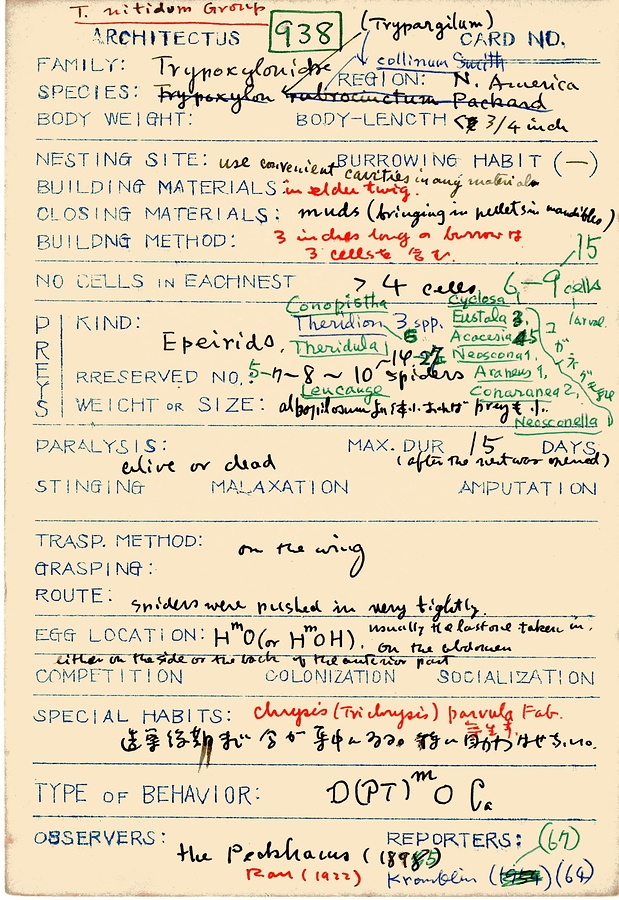 T. nitidum Group
938 (Trypargilum)
ARCHITECTUS CARD NO.
collinum Smith
FAMILY: Trypoxylonidae REGION: N. America
SPECIES: Trypoxylon rubrocinctum Packard
BODY WEIGHT: BODY-LENGTH 3/4 inch
NESTING SITE: use convenient cavities in any materials BURROWING HABIT (—)
BUILDING MATERIALS: in elder twig.
CLOSING MATERIALS: muds (bringing in pellets in mandibles)
BUILDNG METHOD: 3 inches long a burrow は 15
3 cells を
NO CELLS IN EACHNEST > 4 cells 6-9 cells
larval
PREYS
KIND: Epeirids,
Conopistha
Theridion 3 spp.
Theridula
Cyclosa
Eustala 3,
Acacesia
Neoscona 1,
Araneus 1,
Conaranea 2,
Neosconella
RRESERVED NO.: 5-7~8~10~14 27 spiders
Leucauge
WEIGHT OR SIZE: albopilosum prey
PARALYSIS: alive or dead MAX. DUR 15 DAYS
(after the nest was opened)
STINGING MALAXATION AMPUTATION
TRASP. METHOD: on the wing
GRASPING:
ROUTE: spiders were pushed in very tightly.
EGG LOCATION: HmO (or HmOH). usually the last one taken in.
on the abdomen
either on the side or the back of the anterior part
COMPETITION COLONIZATION SOCIALIZATION
SPECIAL HABITS: chrysis (Trichrysis) parvula Fab.
TYPE OF BEHAVIOR: D(PT)mO Ca
OBSERVERS: the Peckhams (1898)
Rau (1922)
REPORTERS: (67)
Krombein (64)